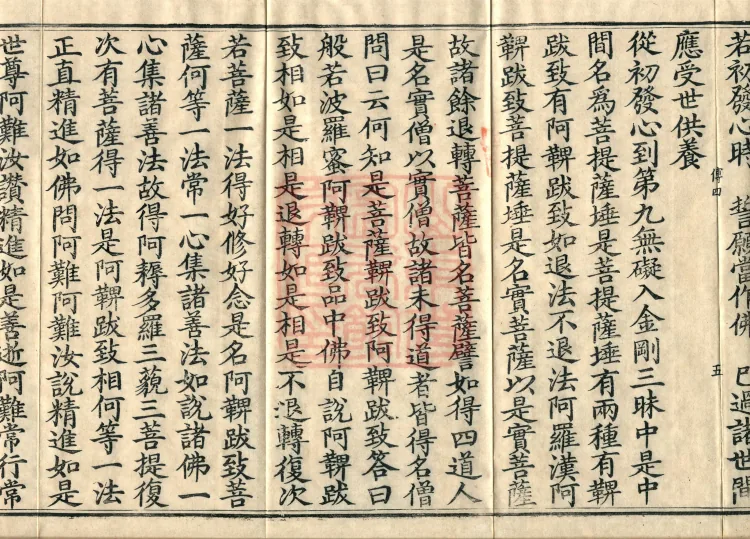 若初發心時　誓願當作佛　已過諸世間
傳四　五
應受世供養
從初發心到第九無礙入金剛三昧中是中
間名為菩提薩埵是菩提薩埵有兩種有鞞
跋致有阿鞞跋致如退法不退法阿羅漢阿
鞞跋致菩提薩埵是名實菩薩以是實菩薩
故諸餘退轉菩薩皆名菩薩譬如得四道人
是名實僧以實僧故諸未得道者皆得名僧
問曰云何知是菩薩鞞跋致阿鞞跋致答曰
般若波羅蜜阿鞞跋致品中佛自說阿鞞跋
致相如是相是退轉如是相是不退轉復次
若菩薩一法得好修好念是名阿鞞跋致菩
薩何等一法常一心集諸善法如說諸佛一
心集諸善法故得阿耨多羅三藐三菩提復
次有菩薩得一法是阿鞞跋致相何等一法
正直精進如佛問阿難阿難汝說精進如是
世尊阿難汝讚精進如是善逝阿難常行常